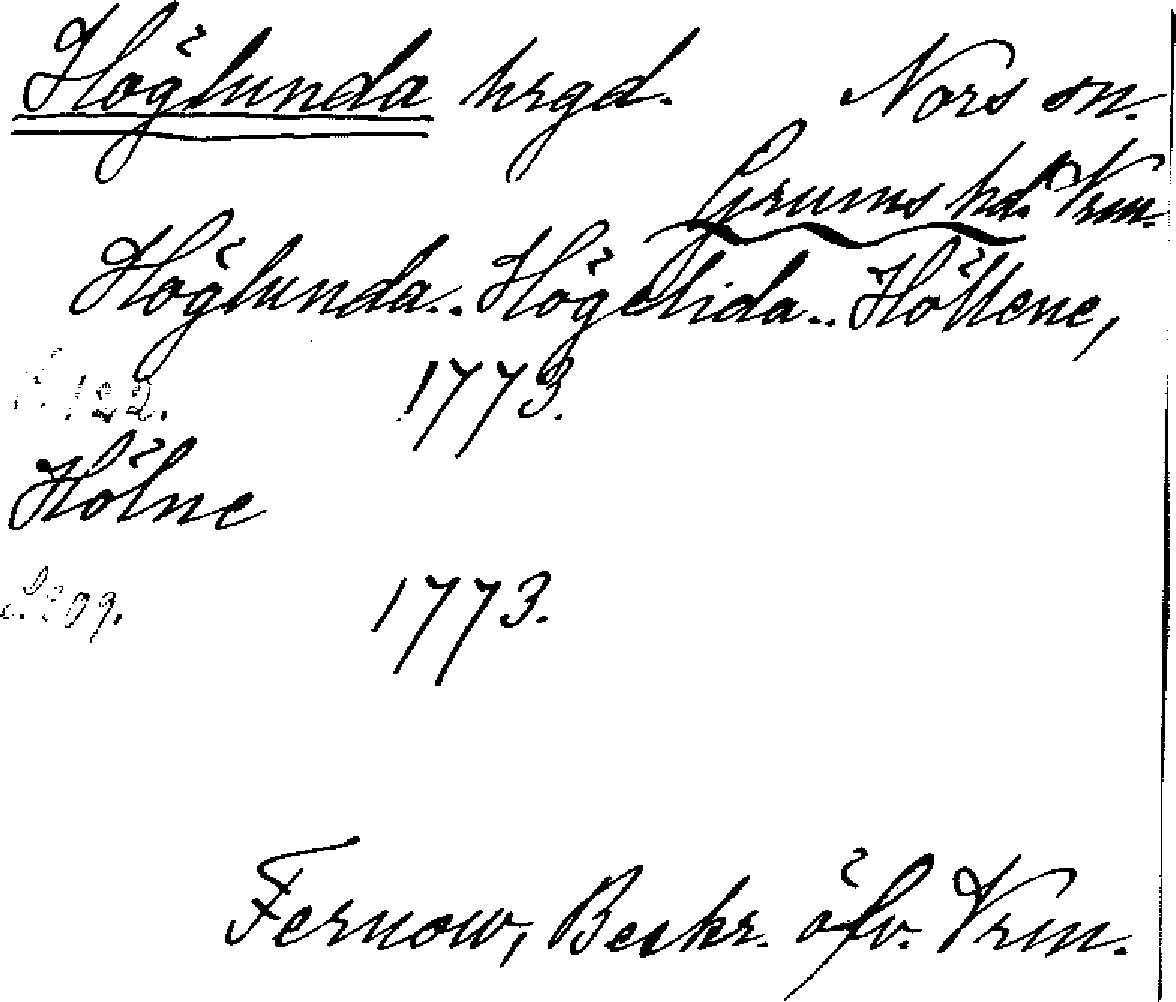 Höglunda hrgd. Nors sn.
Grums hd. Vrm.
Höglunda.. Högelida.. Höllene,
S. 122. 1773.
Hölne
S. 209. 1773.
Fernow, Beskr. öfv. Vrm.